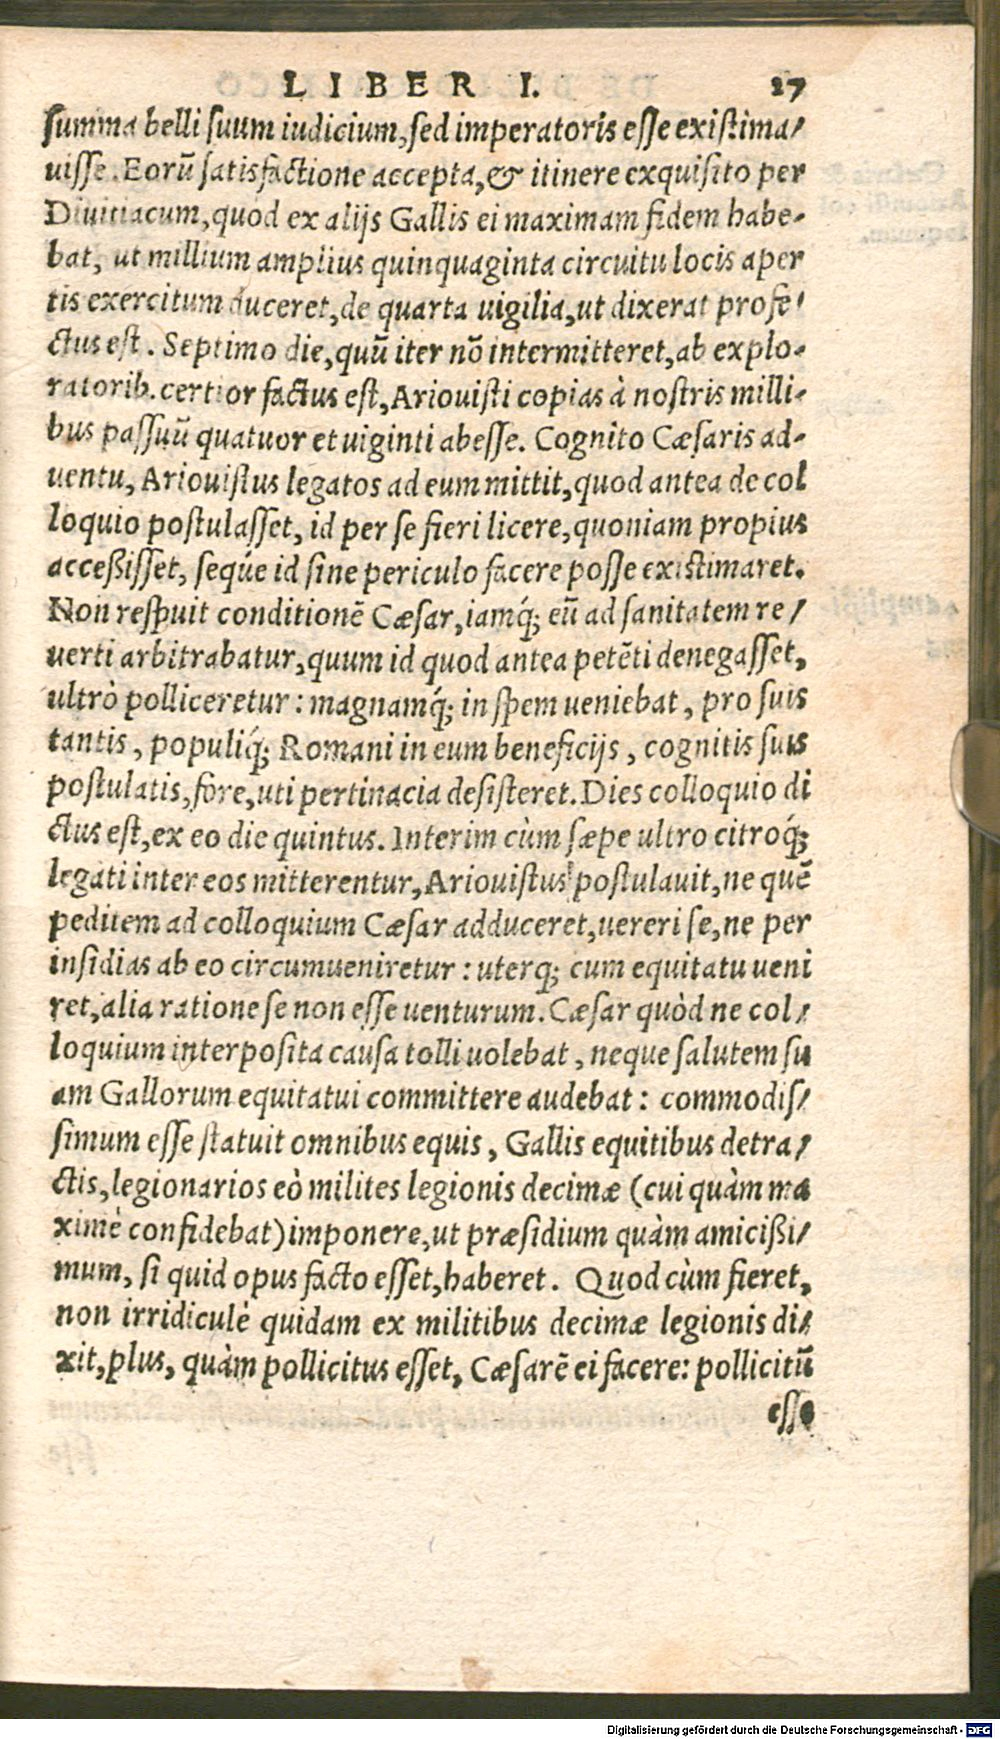 LIBER I. 27
summa belli suum iudicium, sed imperatoris esse existima/
uisse. Eorũ satisfactione accepta, & itinere exquisito per
Diuitiacum, quod ex alijs Gallis ei maximam fidem habe-
bat, ut millium amplius quinquaginta circuitu locis aper
tis exercitum duceret, de quarta uigilia, ut dixerat profe/
ctus est. Septimo die, quũ iter nõ intermitteret, ab explo-
ratorib. certior factus est, Ariouisti copias à nostris milli-
bus passuũ quatuor et uiginti abesse. Cognito Cæsaris ad-
uentu, Ariouistus legatos ad eum mittit, quod antea de col
loquio postulasset, id per se fieri licere, quoniam propius
acceßisset, seq́ue id sine periculo facere posse existimaret.
Non respuit conditionẽ Cæsar, iamq́; eũ ad sanitatem re/
uerti arbitrabatur, quum id quod antea petẽti denegasset,
ultrò polliceretur: magnamq́; in spem ueniebat, pro suis
tantis, populiq́; Romani in eum beneficijs, cognitis suis
postulatis, fore, uti pertinacia desisteret. Dies colloquio di
ctus est, ex eo die quintus. Interim cùm sæpe ultro citroq́;
legati inter eos mitterentur, Ariouistus postulauit, ne quẽ
peditem ad colloquium Cæsar adduceret, uereri se, ne per
insidias ab eo circumueniretur: uterq; cum equitatu ueni
ret, alia ratione se non esse uenturum. Cæsar quòd ne col/
loquium interposita causa tolli uolebat, neque salutem su
am Gallorum equitatui committere audebat: commodis/
simum esse statuit omnibus equis, Gallis equitibus detra/
ctis, legionarios eò milites legionis decimæ (cui quàm ma
ximè confidebat) imponere, ut præsidium quàm amicißi/
mum, si quid opus facto esset, haberet. Quod cùm fieret,
non irridiculè quidam ex militibus decimæ legionis di/
xit, plus, quàm pollicitus esset, Cæsarẽ ei facere: pollicitũ
esse
Digitalisierung gefördert durch die Deutsche Forschungsgemeinschaft - DFG